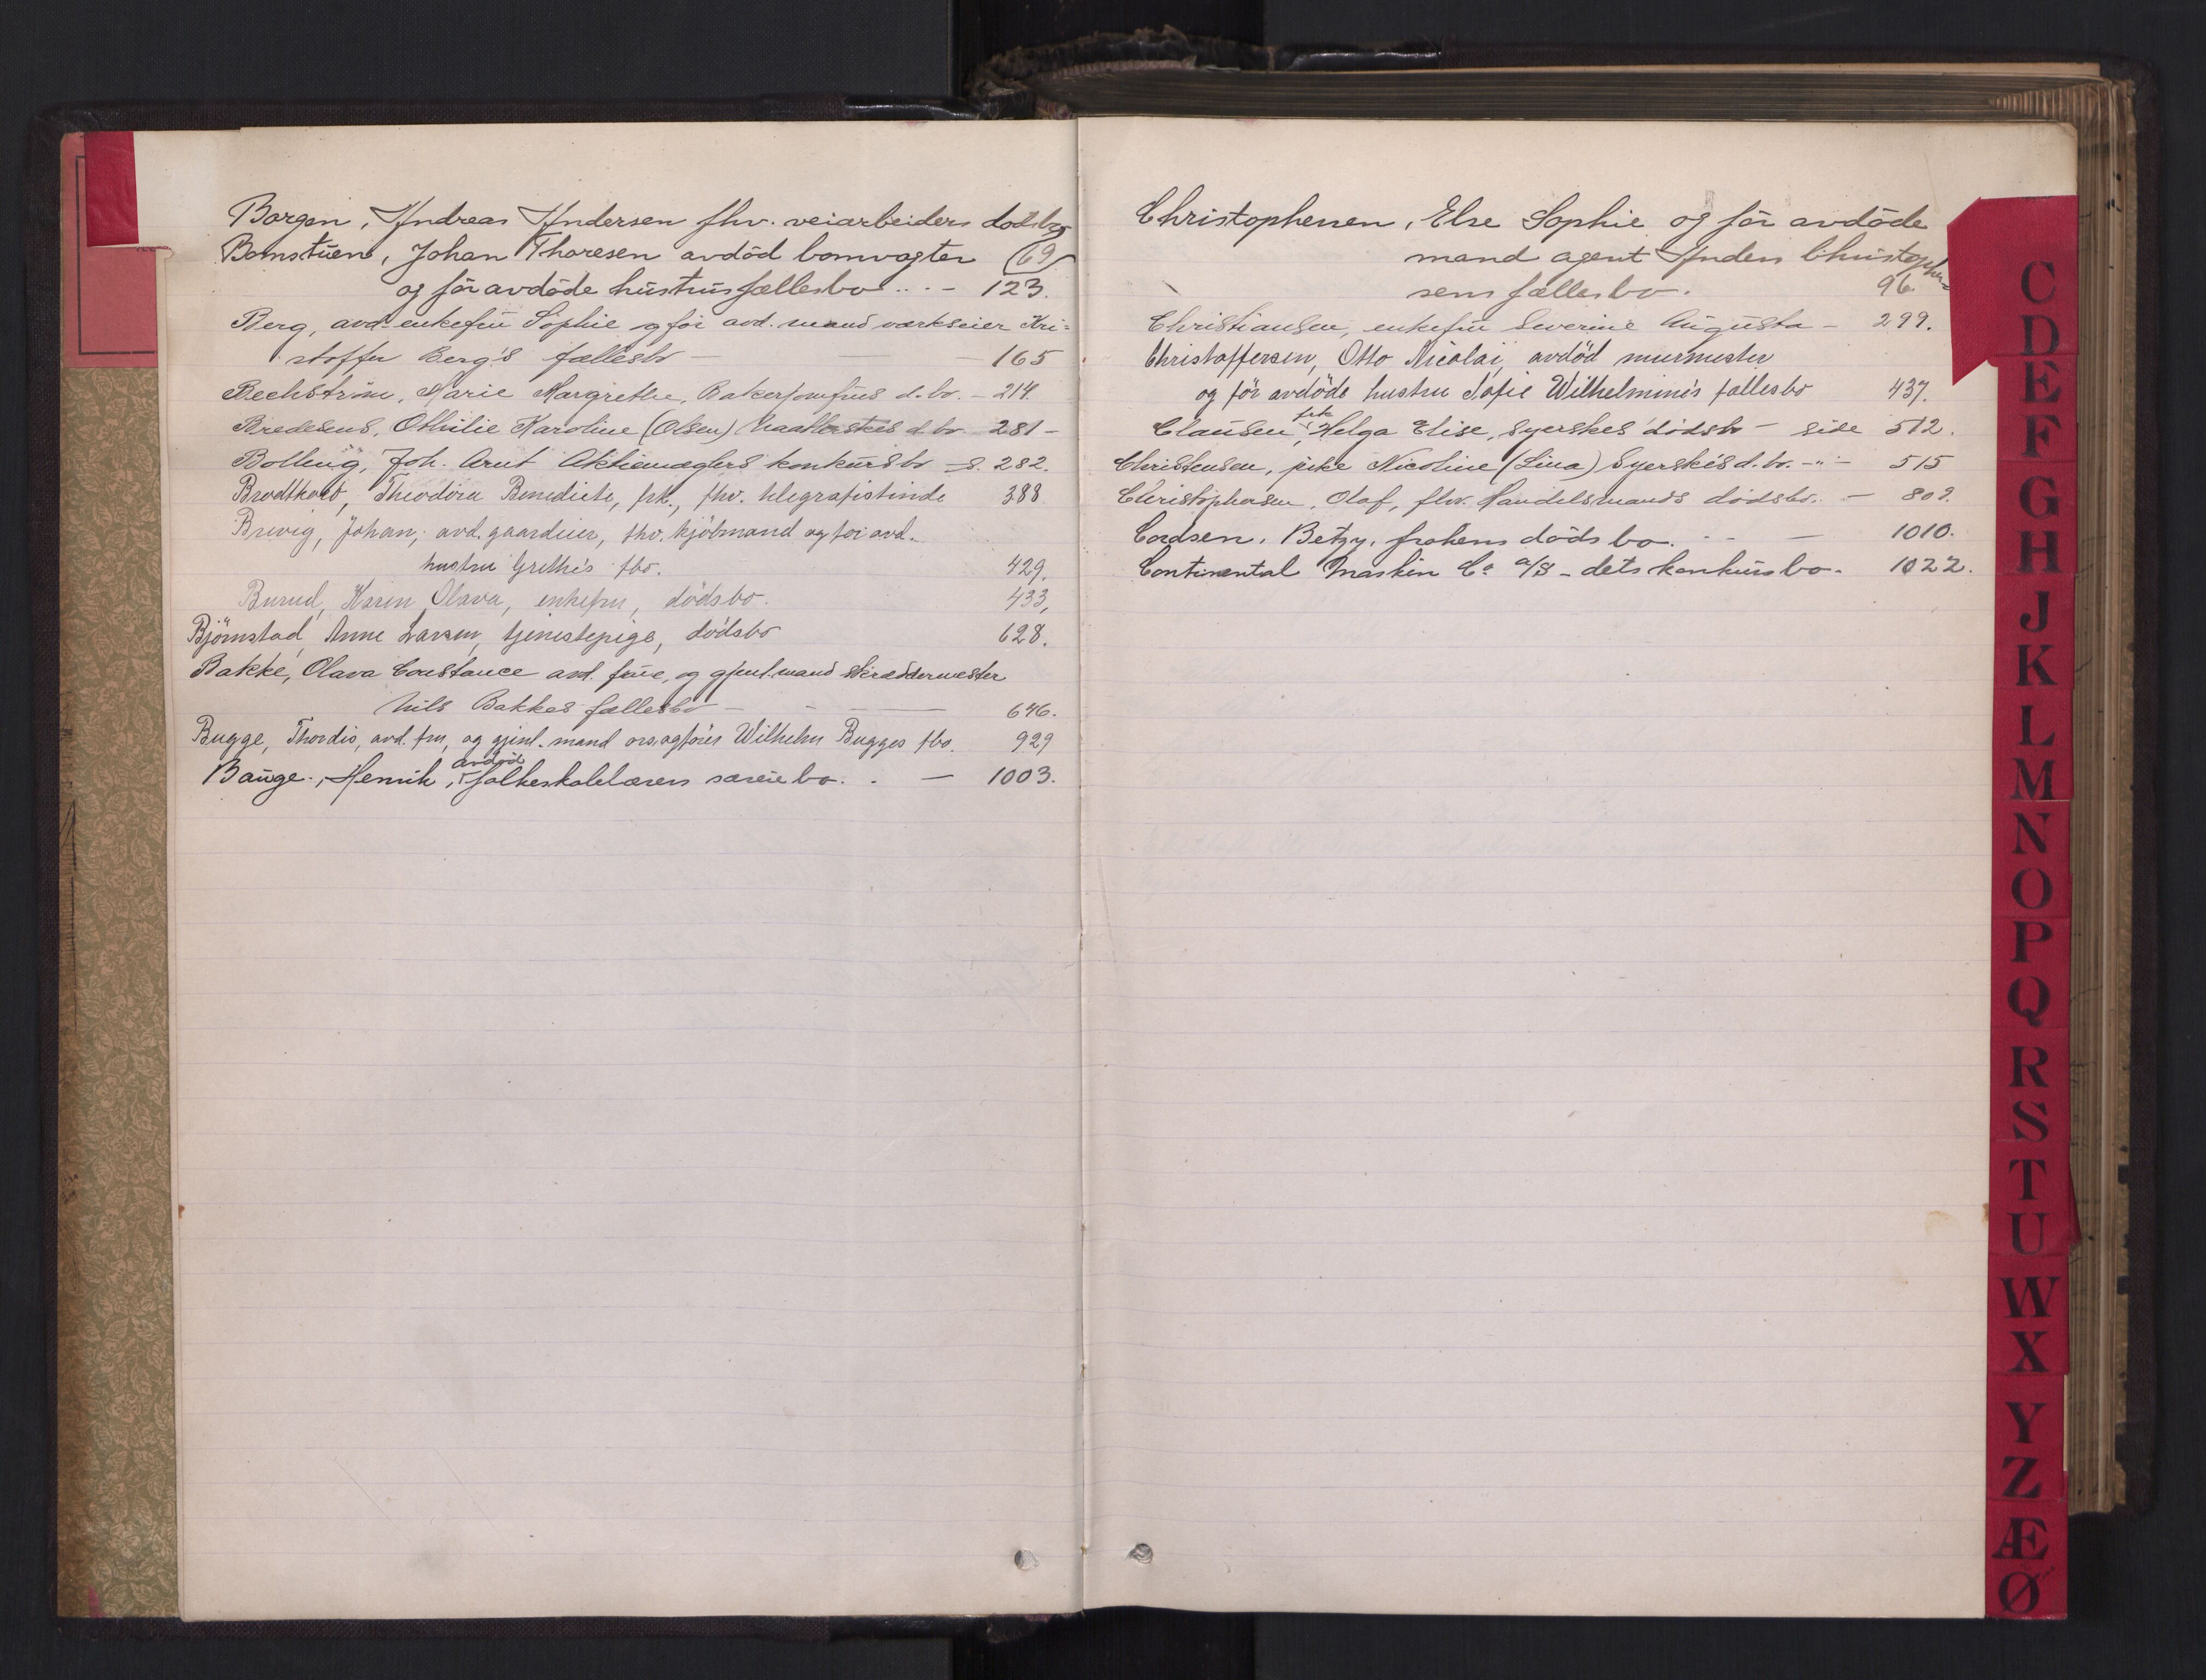 Borgen, Andreas Andersen fhv. veiarbeiders dødsbo
Bomstuen, Johan Thoresen avdød bomvogter (69)
og før avdøde hustrus fællesbo .. - 123.
Berg, avd. enkefru Sophie og før avd. mand værkseier Kri=
stoffer Berg's fællesbo — — 165
Bechstrøm, Marie Margrethe, Bakerjomfrus d.bo. - 214.
Bredesens, Othilie Karoline (Olsen) d.bo 281 -
Bolling, Joh. Arnt Aktiemæglers konkursbo - s. 282.
Brodtkorb, Theodora Benedicte, frk., fhv. telegrafistinde 388
Brevig, Johan, avd. gaardeier, fhv. kjøbmand og før avd.
hustru Grethe's fbo. 429.
Burud, Karen Olava, enkefru, dødsbo. 433,
Bjørnstad, Anne Larsen, tjenestepige, dødsbo 628.
Bakke, Olava Constance avd. frue, og gjenl. mand skræddermester
Nils Bakkes fællesbo - - — 646.
Bugge, Thordis, avd. fru, og gjenl. mand orsagfører Wilhelm Bugges fbo. 929
Bauge, Henrik, avdød folkeskolelærers særeiebo. . — 1003.
Christophersen, Else Sophie og før avdøde
mand agent Anders Christopher=
sens fællesbo. 96.
Christiansen, enkefru Severine Augusta - 299.
Christoffersen, Otto Nicolai, avdød murmester
og før avdøde hustru Sofie Wilhelmine's fællesbo 437.
Clausen, frk Helga Elise, syerskes dødsbo - side 512.
Christensen, pike Nicoline (Lina) Syerskes d.bo. -"- 515
Christophersen, Olaf, fhv. Handelsmands dødsbo. - 809.
Cordsen, Betzy, frøkens dødsbo. - - — 1010.
Continental Maskin Co a/s - dets konkursbo. 1022.
C
D
E
F
G
H
J
K
L
M
N
O
P
Q
R
S
T
U
W
X
Y
Z
Æ
Ø